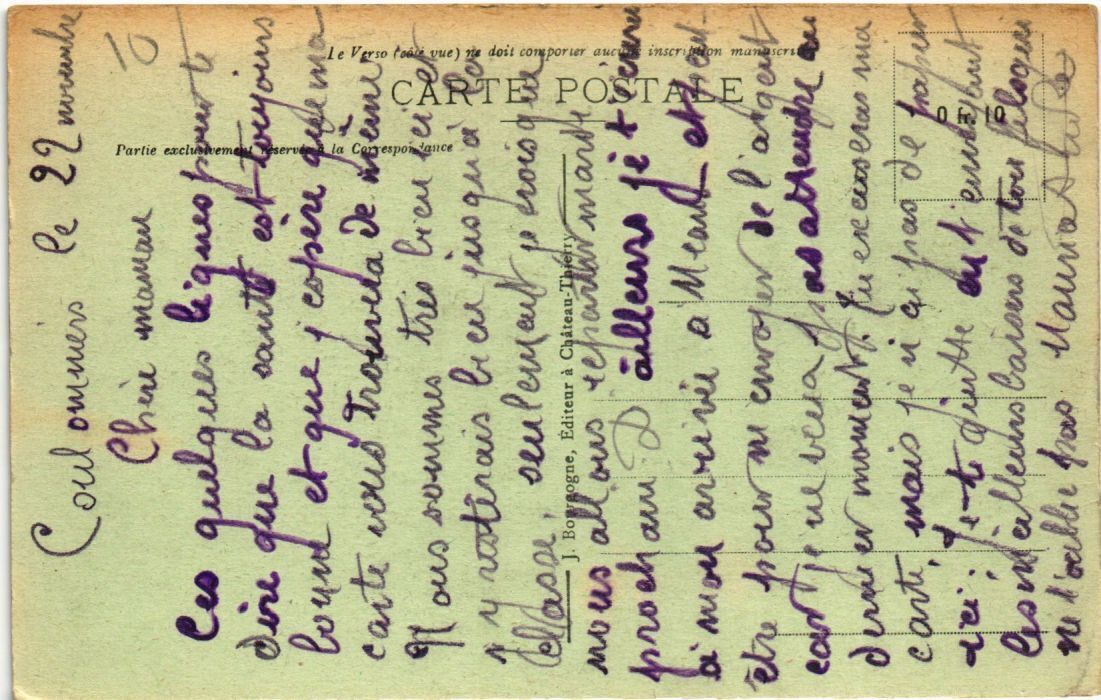 10
Le Verso (côté vue) ne doit comporter aucune inscription manuscrite
CARTE POSTALE
Partie exclusivement réservée à la Correspondance
0 fr. 10
J. Bourgogne, Éditeur à Château-Thierry
Coulommiers le 22 novembre
Chère maman
Ces quelques lignes pour te
dire que la santé est toujours
bonne et que j'espère que ma
carte vous trouvera de même
Nous sommes très bien ici et
j'y resterais bien jusqu'à la
classe, seulement je crois que
nous allons repartir mardi
prochain. D'ailleurs je t'écrirai
à mon arrivée à Meaux et peut-
être pour m'envoyer de l'argent
car je ne serai pas attendre au
dernier moment. Tu excuseras ma
carte, mais je n'ai pas de papier
ici. Je te quitte en t'envoyant
les meilleurs baisers de ton fils que
ne t'oublie pas Maurice